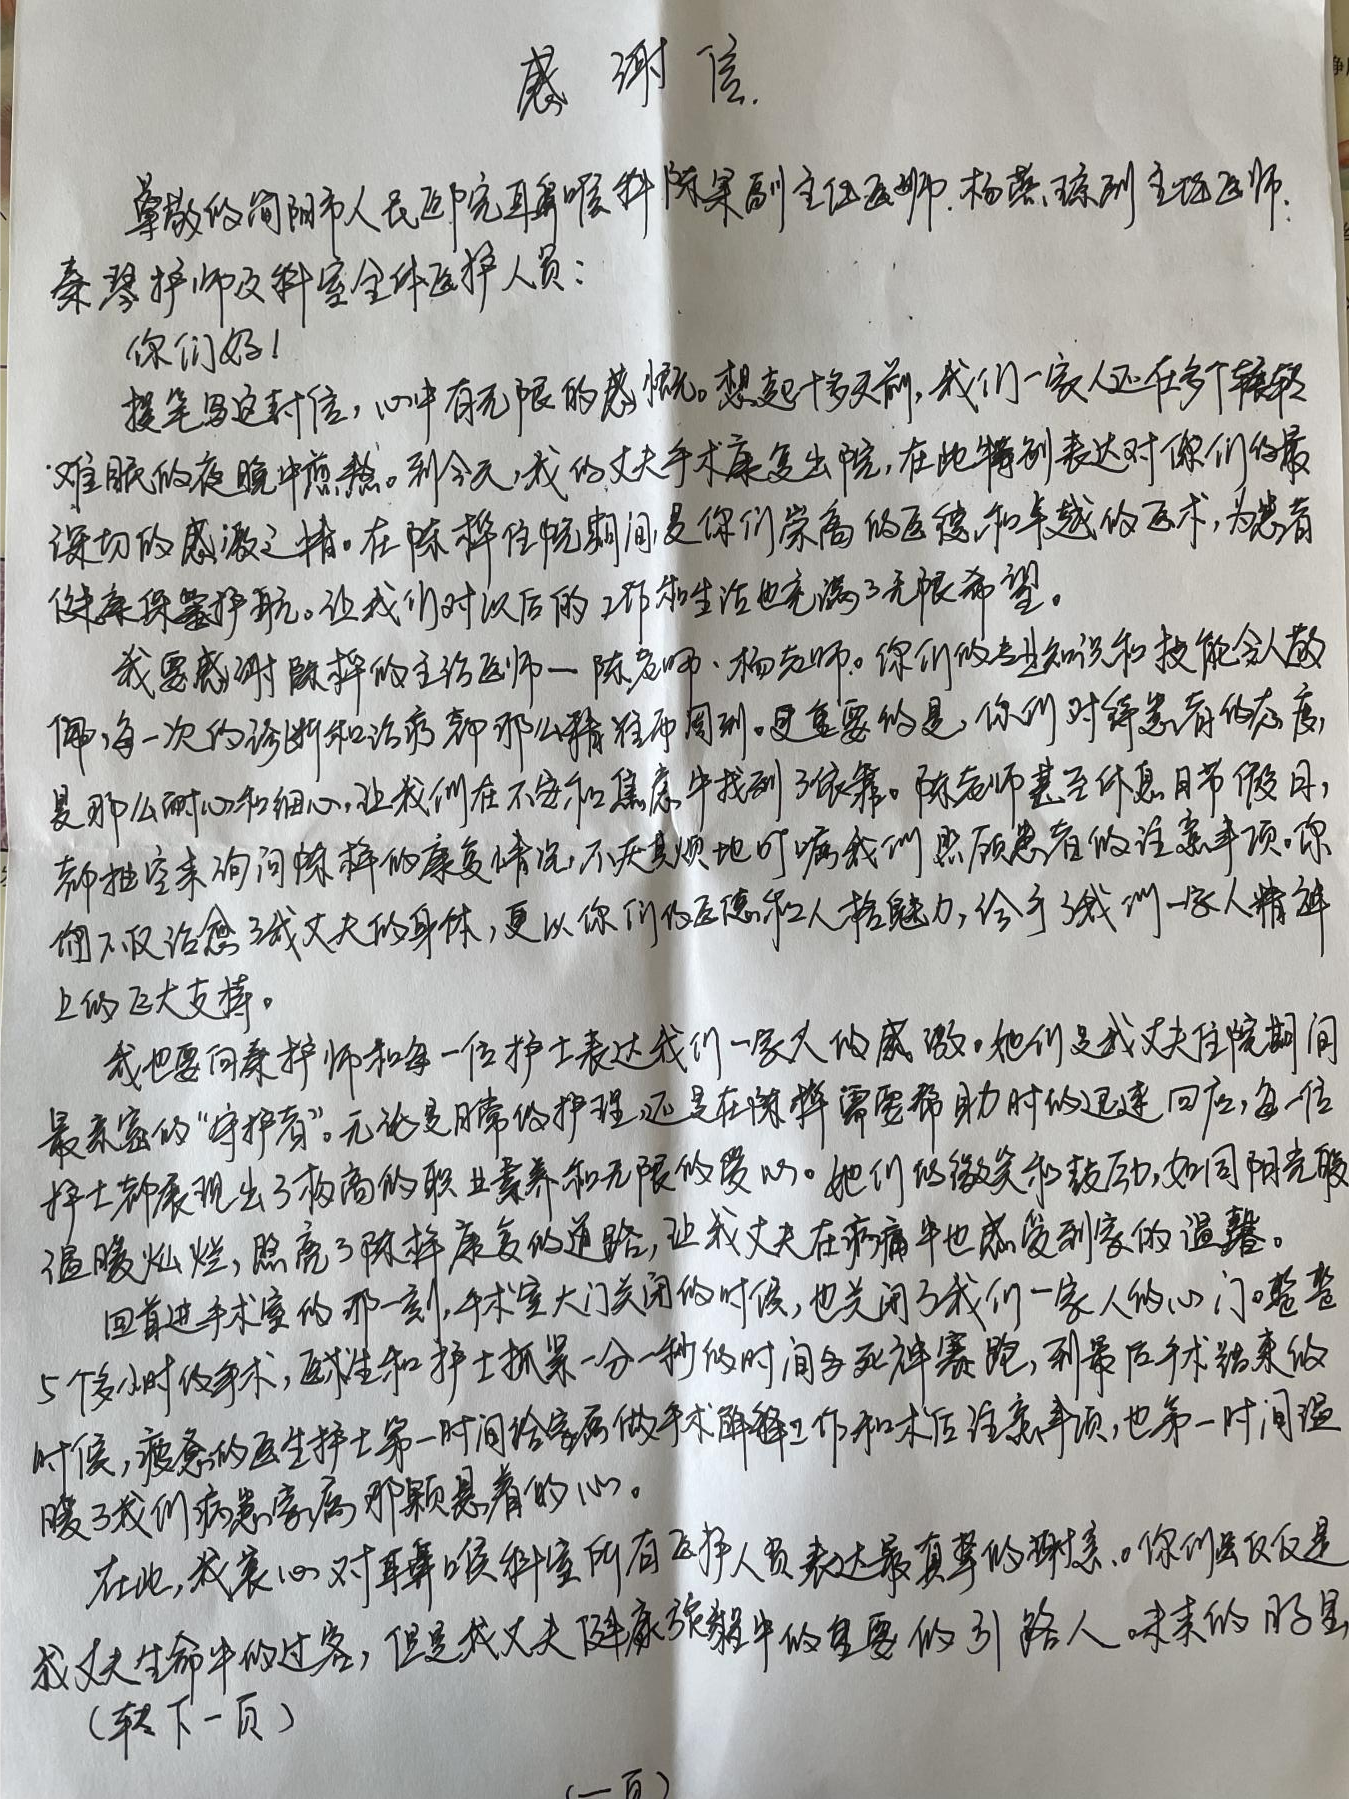 感谢信.
尊敬的简阳市人民医院耳鼻喉科陈果副主任医师、杨燕琼副主任医师、
秦琴护师及科室全体医护人员：
你们好！
提笔写这封信，心中有无限的感慨。想起十多天前，我们一家人还在多个辗转
难眠的夜晚中煎熬。到今天，我的丈夫手术康复出院，在此特别表达对你们的最
深切的感激之情。在陈桦住院期间，是你们崇高的医德和卓越的医术，为患者
健康保驾护航。让我们对以后的工作和生活也充满了无限希望。
我要感谢陈桦的主治医师一陈老师、杨老师。你们的专业知识和技能令人敬
佩，每一次的诊断和治疗都那么精准而周到。更重要的是，你们对待患者的态度，
是那么耐心和细心，让我们在不安和焦虑中找到了依靠。陈老师甚至休息日节假日，
都抽空来询问陈桦的康复情况，不厌其烦地叮嘱我们照顾患者的注意事项。你
们不仅治愈了我丈夫的身体，更以你们的医德和人格魅力，给予了我们一家人精神
上的巨大支持。
我也要向秦护师和每一位护士表达我们一家人的感激。她们是我丈夫住院期间
最亲密的“守护者”。无论是日常的护理，还是在陈桦需要帮助时的迅速回应，每一位
护士都展现出了极高的职业素养和无限的爱心。她们的微笑和鼓励，如同阳光般
温暖灿烂，照亮了陈桦康复的道路，让我丈夫在病痛中也感受到家的温馨。
回首进手术室的那一刻，手术室大门关闭的时候，也关闭了我们一家人的心门。整整
5个多小时的手术，医生和护士抓紧一分一秒的时间与死神赛跑，到最后手术结束的
时候，疲惫的医生护士第一时间给家属做手术解释工作和术后注意事项，也第一时间温
暖了我们病患家属那颗悬着的心。
在此，我衷心对耳鼻喉科室所有医护人员表达最真挚的谢意。你们虽仅仅是
我丈夫生命中的过客，但是我丈夫健康旅程中的重要的引路人。未来的日子里
（转下一页）
（一页）